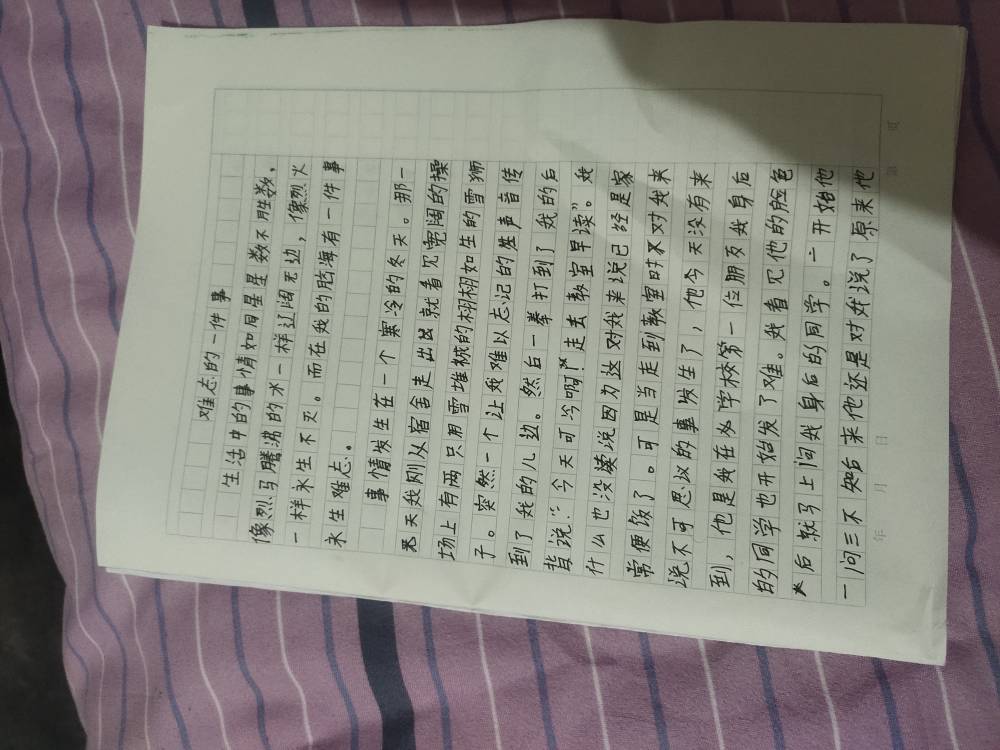 难忘的一件事
生活中的事情如周星星数不胜数，
像烈马腾沸的水一样辽阔无边，像烈火
一样永生不灭。而在我的脑海有一件事
永生难忘。
事情发生在一个寒冷的冬天。那一
天我刚从宿舍走出就看见宽阔的操
场上有两只用雪堆积的栩栩如生的雪狮
子。突然一个让我难以忘记的姓声音传
到了我的儿边。然后一拳打到了我的后
背说：“今天可冷啊！走去教室早读”。我
什么也没读说因为这对我来说已经是家
常便饭了。可是当走到教室时对我来
说不可思议的事发生了，他今天没有来
到，他是我在学校第一位朋友我身后
的同学也开始发了难。我看见他的脸色
后就马上问我身后的同学。一开始他
一问三不知后来他还是对我说了原来他
第 页
年 月 日